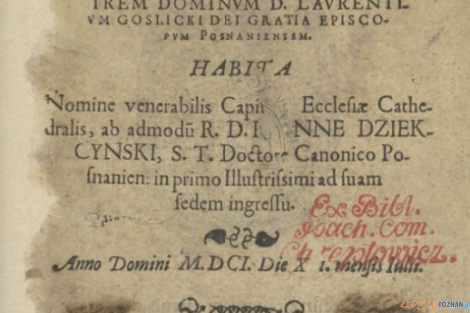 TREM DOMINVM D. LAVRENTI-
VM GOSLICKI DEI GRATIA EPISCO-
PVM POSNANIENSEM.
HABITA
Nomine venerabilis Capit Ecclesiæ Cathe-
dralis, ab admodũ R. D. I NNE DZIEK-
CYNSKI, S. T. Doctore Canonico Po-
snanien: in primo Illustrissimi ad suam
sedem ingressu.
Ex Bibl.
Joach. Com.
Chreptowicz.
Anno Domini M.DCI. Die X I. mensis Iulii.
POZNAN